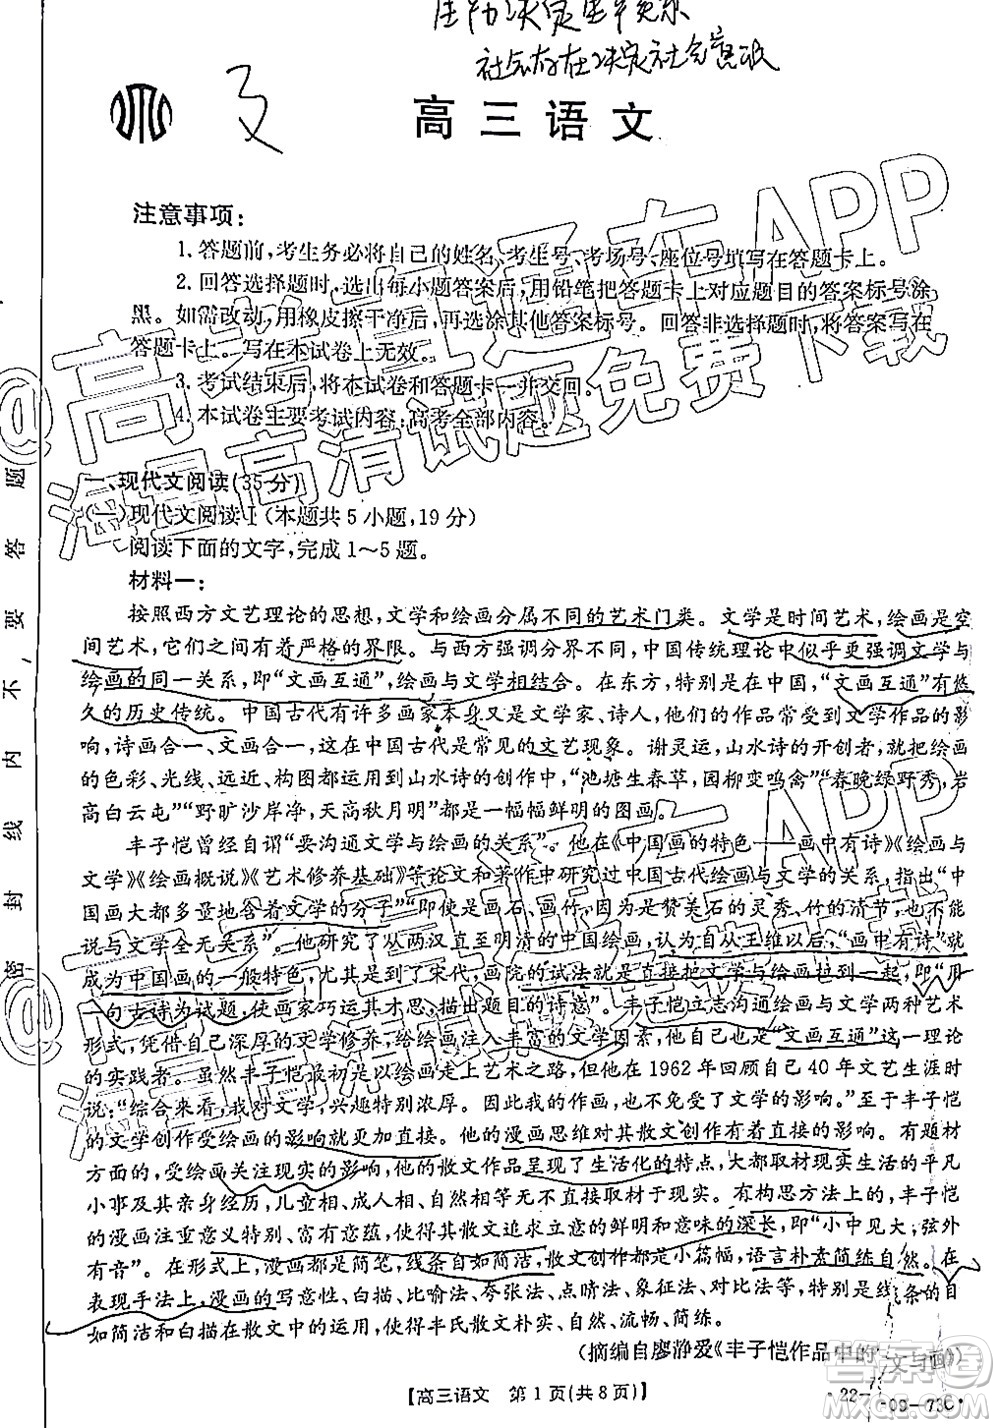 社会存在决定社会意识
高三语文
注意事项：
1. 答题前，考生务必将自己的姓名、考生号、考场号、座位号填写在答题卡上。
2. 回答选择题时，选出每小题答案后，用铅笔把答题卡上对应题目的答案标号涂
黑。如需改动，用橡皮擦干净后，再选涂其他答案标号。回答非选择题时，将答案写在
答题卡上。写在本试卷上无效。
3. 考试结束后，将本试卷和答题卡一并交回。
4. 本试卷主要考试内容：高考全部内容。
一、现代文阅读(35分)
(一)现代文阅读Ⅰ(本题共5小题，19分)
阅读下面的文字，完成1～5题。
材料一：
按照西方文艺理论的思想，文学和绘画分属不同的艺术门类。文学是时间艺术，绘画是空
间艺术，它们之间有着严格的界限。与西方强调分界不同，中国传统理论中似乎更强调文学与
绘画的同一关系，即“文画互通”，绘画与文学相结合。在东方，特别是在中国，“文画互通”有悠
久的历史传统。中国古代有许多画家本身又是文学家、诗人，他们的作品常受到文学作品的影
响，诗画合一、文画合一，这在中国古代是常见的文艺现象。谢灵运，山水诗的开创者，就把绘画
的色彩、光线、远近、构图都运用到山水诗的创作中，“池塘生春草，园柳变鸣禽”“春晚绿野秀，岩
高白云屯”“野旷沙岸净，天高秋月明”都是一幅幅鲜明的图画。
丰子恺曾经自谓“要沟通文学与绘画的关系”。他在《中国画的特色——画中有诗》《绘画与
文学》《绘画概说》《艺术修养基础》等论文和著作中研究过中国古代绘画与文学的关系，指出“中
国画大都多量地含着文学的分子”“即使是画石、画竹，因为是赞美石的灵秀、竹的清节，也不能
说与文学全无关系”。他研究了从两汉直至明清的中国绘画，认为自从王维以后，“画中有诗”就
成为中国画的一般特色，尤其是到了宋代，画院的试法就是直接把文学与绘画拉到一起，即“用
一句古诗为试题，使画家巧运其才思，描出题目的诗意”。丰子恺立志沟通绘画与文学两种艺术
形式，凭借自己深厚的文学修养，给绘画注入丰富的文学因素，他自己也是“文画互通”这一理论
的实践者。虽然丰子恺最初是以绘画走上艺术之路，但在1962年回顾自己40年文艺生涯时
说：“综合来看，我对文学，兴趣特别浓厚。因此我的作画，也不免受了文学的影响。”至于丰子恺
的文学创作受绘画的影响就更加直接。他的漫画思维对其散文创作有着直接的影响。在题材
方面，受绘画关注现实的影响，他的散文作品呈现了生活化的特点，大都取材于生活的平凡
小事及其亲身经历，儿童相、成人相、自然相等无不包罗其中。在构思方法上，丰子恺
画作注重意义特别、富有意蕴，使得其散文追求立意的鲜明和意味的深长，即“小中见大，弦外
有音”。在形式上，漫画都是小画，线条自如简洁，散文创作都是小篇幅，语言朴素简练自然。在
表现手法上，漫画的写意性、白描、比喻、夸张法、点睛法、象征法、对比法等，特别是线条的自
如简洁和白描在散文中的运用，使得丰氏散文朴实、自然、流畅、简练。
(摘编自廖静爱《丰子恺作品中的“文与画”》)
【高三语文　第1页(共8页)】
·22-7
09-73C·
密封线内不要答题
@高考直通车APP
海量高清试题免费下载
@高考直通车APP
海量高清试题免费下载